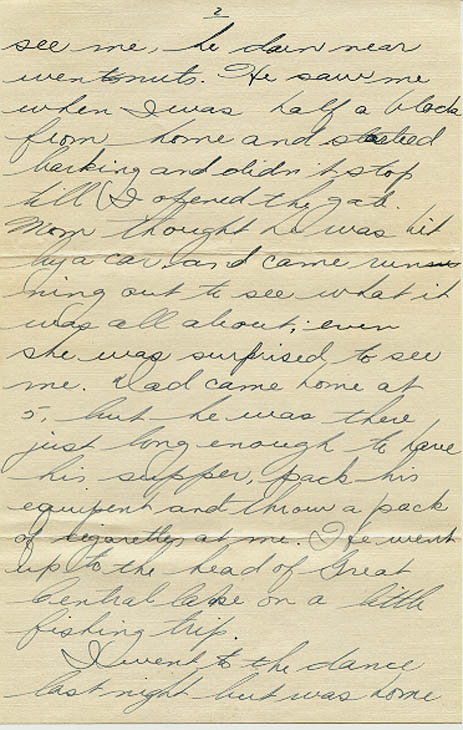 2
see me, he darn near
went nuts. He saw me
when I was half a block
from home and started
barking and didn't stop
till I opened the gate.
Mom thought he was hit
by a car and came run
ning out to see what it
was all about; even
she was surprised to see
me. Dad came home at
5, but he was there
just long enough to have
his supper, pack his
equipent and throw a pack
of cigarettes at me. He went
up to the head of Great
Central lake on a little
fishing trip.
I went to the dance
last night but was home